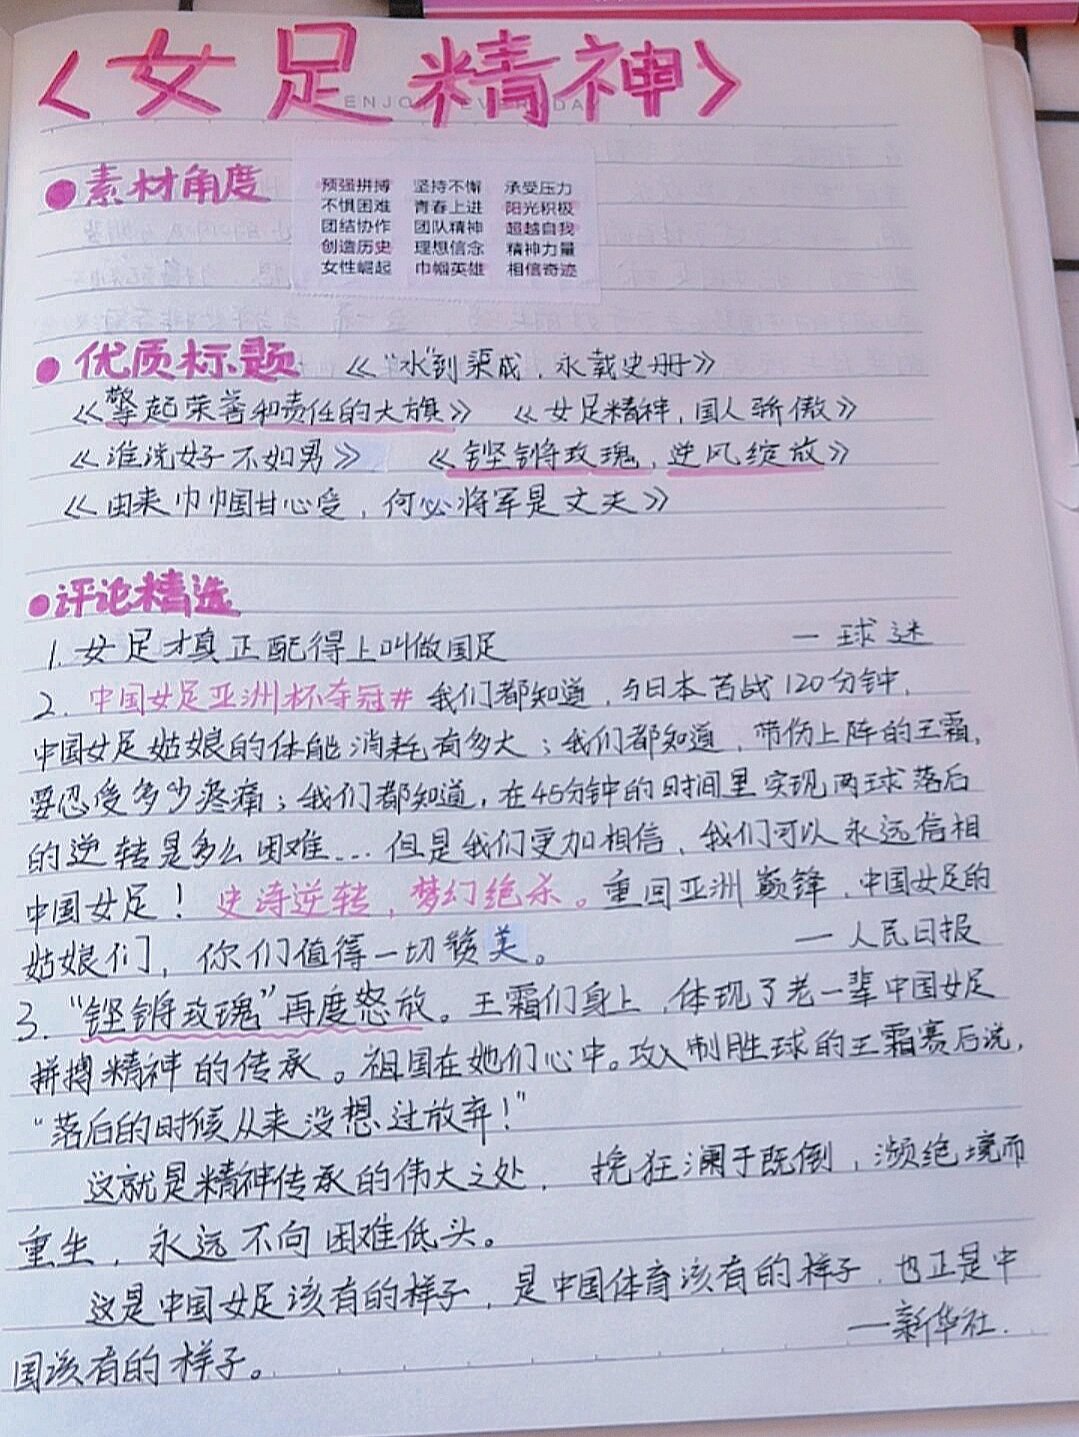 〈女足精神〉
ENJOY EVERYDAY
●素材角度
预强拼搏 坚持不懈 承受压力
不惧困难 青春上进 阳光积极
团结协作 团队精神 超越自我
创造历史 理想信念 精神力量
女性崛起 巾帼英雄 相信奇迹
●优质标题 《“水”到渠成，永载史册》
《擎起荣善和责任的大旗》 《女足精神，国人骄傲》
《谁说女子不如男》 《铿锵玫瑰，逆风绽放》
《由来巾帼甘心受，何必将军是丈夫》
●评论精选
1. 女足才真正配得上叫做国足 —球迷
2. 中国女足亚洲杯夺冠# 我们都知道，与日本苦战120分钟，
中国女足姑娘的体能消耗有多大；我们都知道，带伤上阵的王霜，
要忍受多少疼痛；我们都知道，在45分钟的时间里实现两球落后
的逆转是多么困难... 但是我们更加相信，我们可以永远信相
中国女足！史诗逆转，梦幻绝杀。重回亚洲巅锋，中国女足的
姑娘们，你们值得一切赞美。 —人民日报
3. “铿锵玫瑰”再度怒放。王霜们身上，体现了老一辈中国女足
拼搏精神的传承。祖国在她们心中。攻入制胜球的王霜赛后说，
“落后的时候从来没想过放弃！”
这就是精神传承的伟大之处，挽狂澜于既倒，濒绝境而
重生，永远不向困难低头。
这是中国女足该有的样子，是中国体育该有的样子，也正是中
国该有的样子。 —新华社.